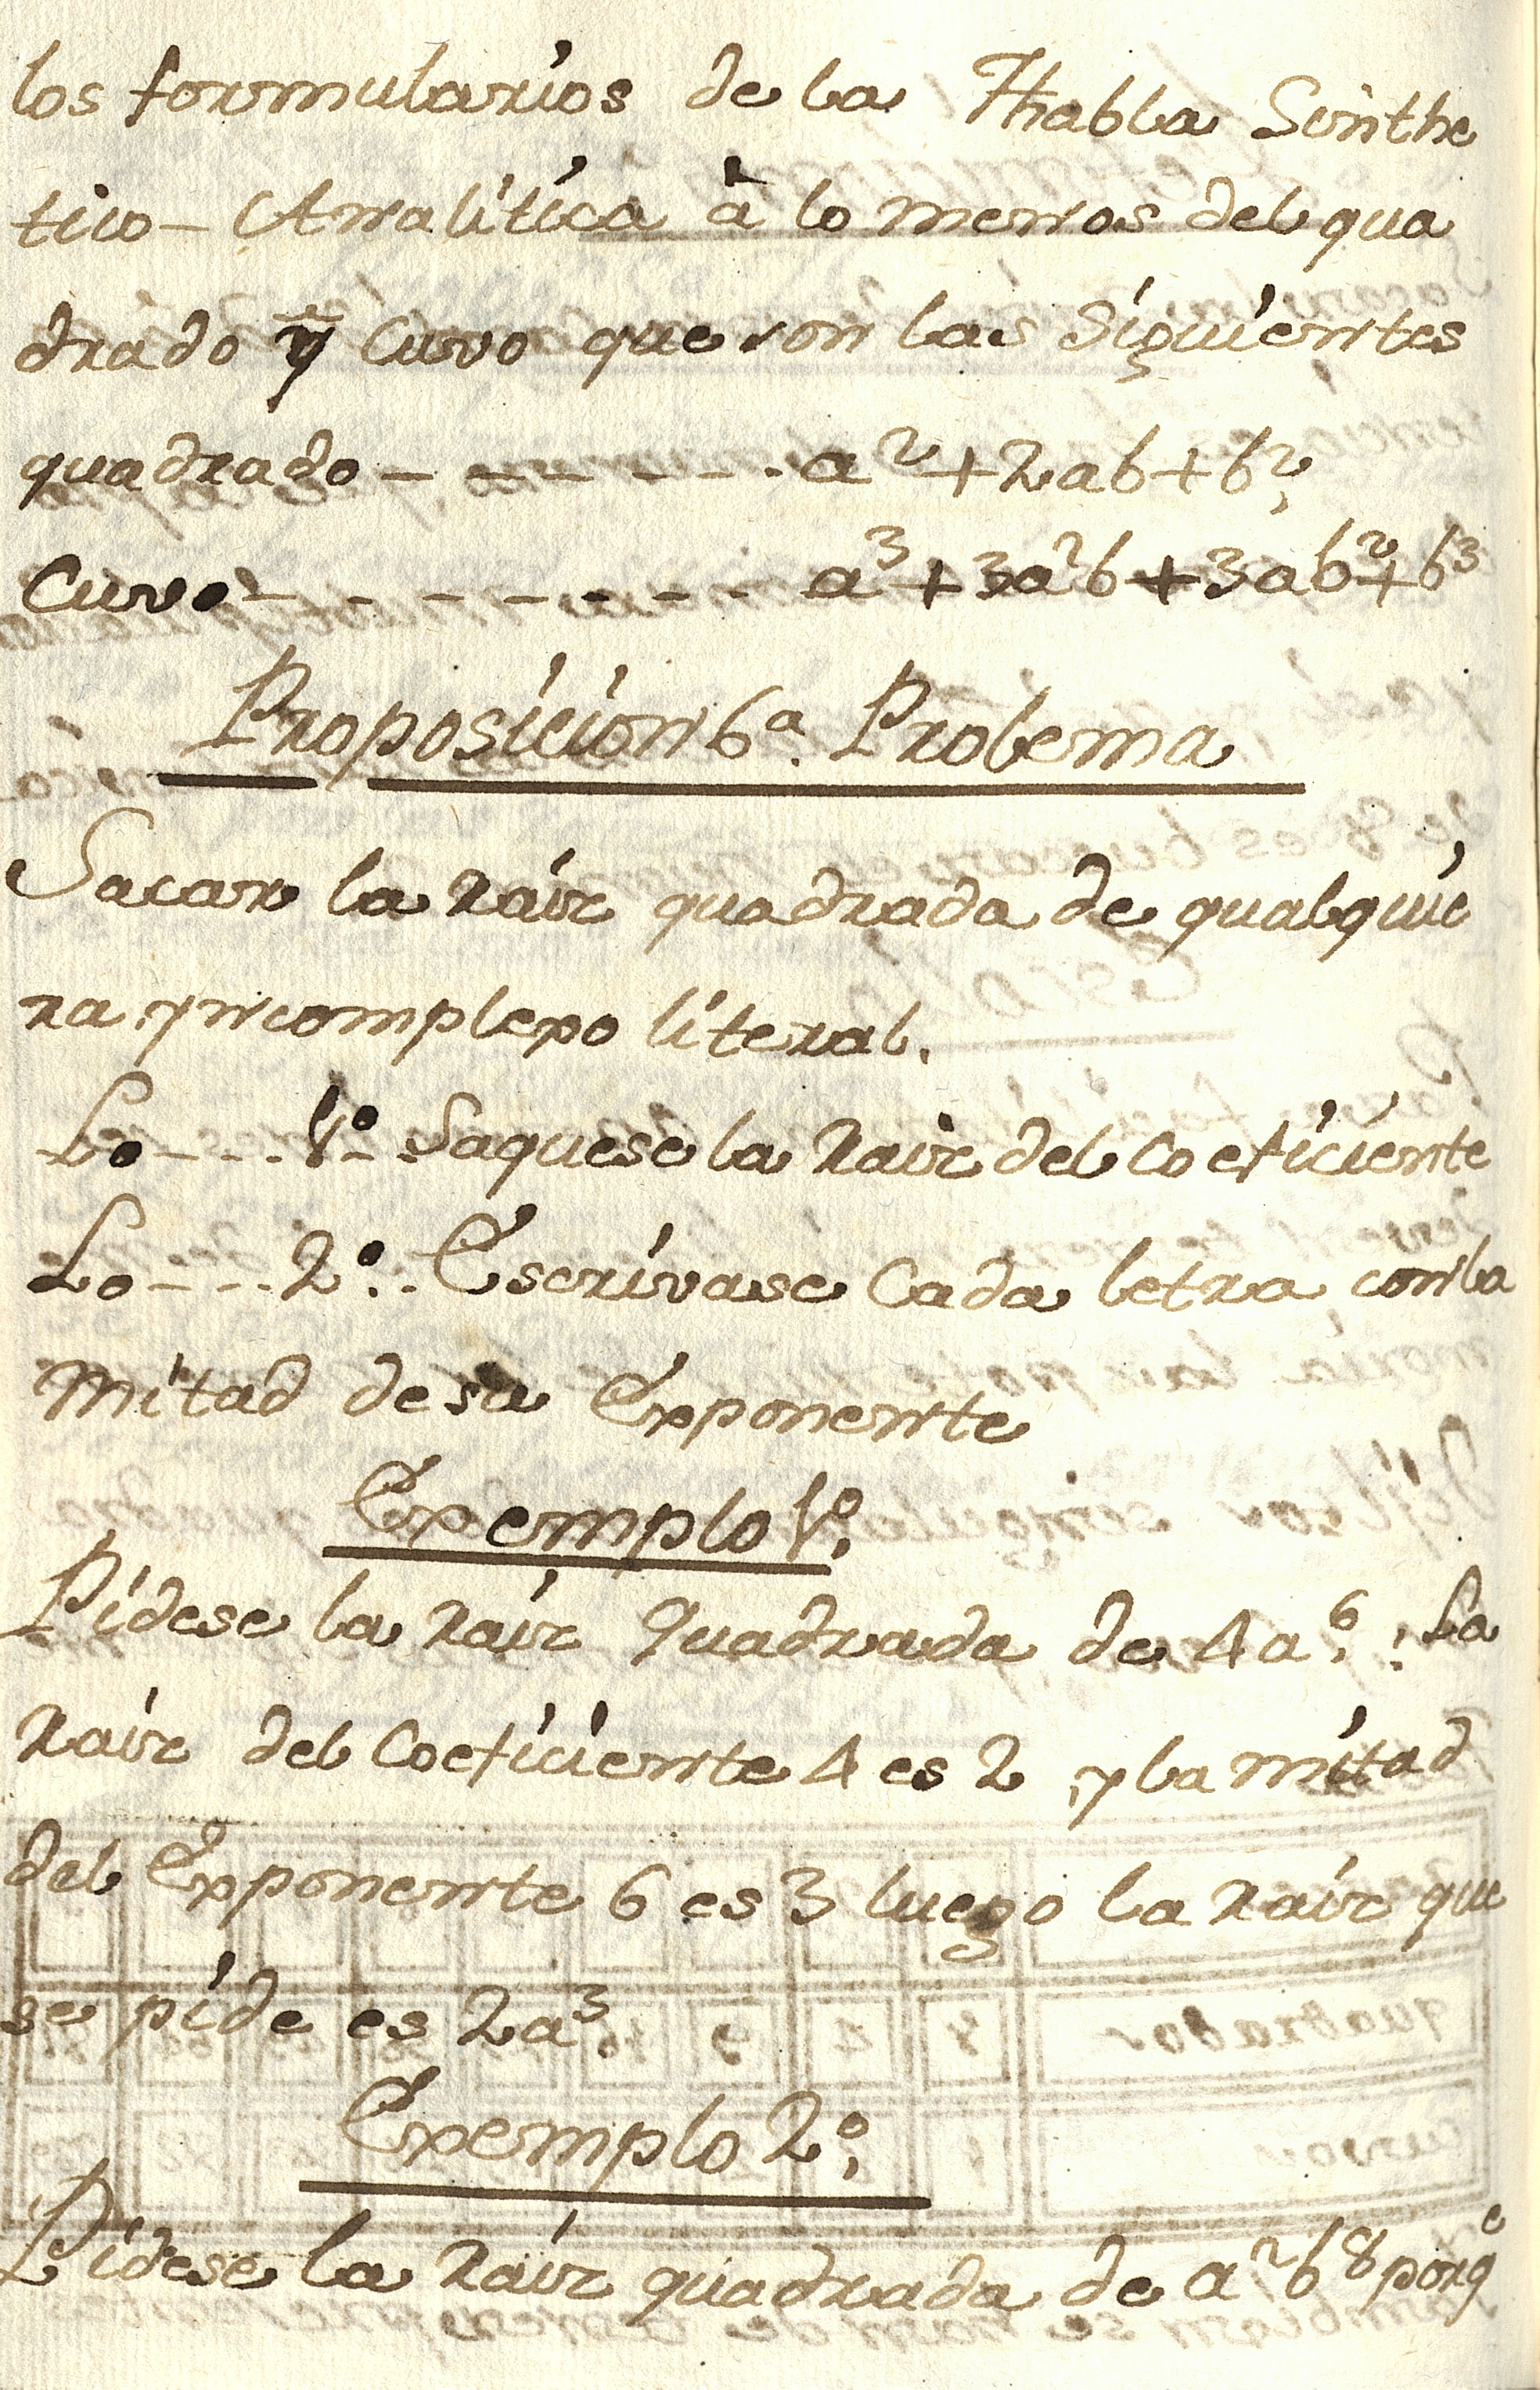 los formularios de la Thabla Sinthe
tico - Analitica à lo menos del qua
drado y Cuvo que son las siguientes
quadrado - - - - - - - a² + 2ab + b²,
Cuvo - - - - - - - - a³ + 3a²b + 3ab² + b³
Proposicion 6ª. Problema
Sacar la raiz quadrada de qualquie
ra yncomplexo literal.
Lo - - - 1º - Saquese la raiz del Coeficiente
Lo - - - 2º. . Escrivase Cada letra con la
Mitad de su Exponente
Exemplo 1º.
Pidese la raiz quadrada de 4a⁶. : La
raiz del Coeficiente 4 es 2 y la mitad
del Exponente 6 es 3 luego la raiz que
se pide es 2a³.
Exemplo 2º.
Pidese la raiz quadrada de a²b⁸ porqᵉ